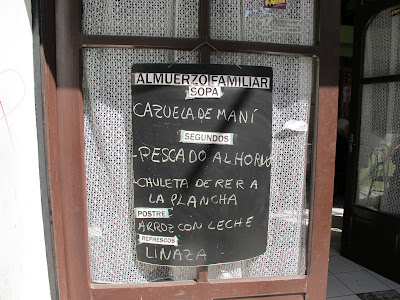 ALMUERZO FAMILIAR
SOPA
CAZUELA DE MANÍ
SEGUNDOS
-PESCADO AL HORNO
-CHULETA DE RER A
LA PLANCHA
POSTRE
ARROZ CON LECHE
REFRESCOS
LINAZA